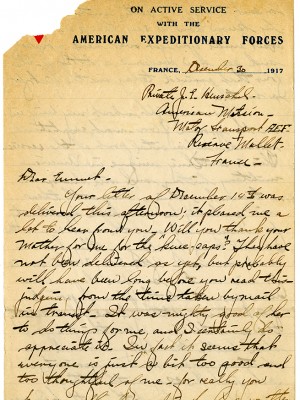 ON ACTIVE SERVICE
WITH THE
AMERICAN EXPEDITIONARY FORCES
FRANCE, December 30 1917
Private J. E.
American Mission -
Motor Transport AEF
Reserve Mallet -
France -
Dear Emmet -
Your letter of December 14th was
delivered this afternoon; it pleased me a
lot to hear from you. Will you thank your
Mother for me for the knee-caps? They have
not been delivered as yet, but probably
will have been long before you read this -
judging from the time taken by mail
in transit - It was mighty good of her
to do things for me, and I certainly do
appreciate it. In fact it seems that
everyone is just a bit too good and
too thoughtful of me - for really you